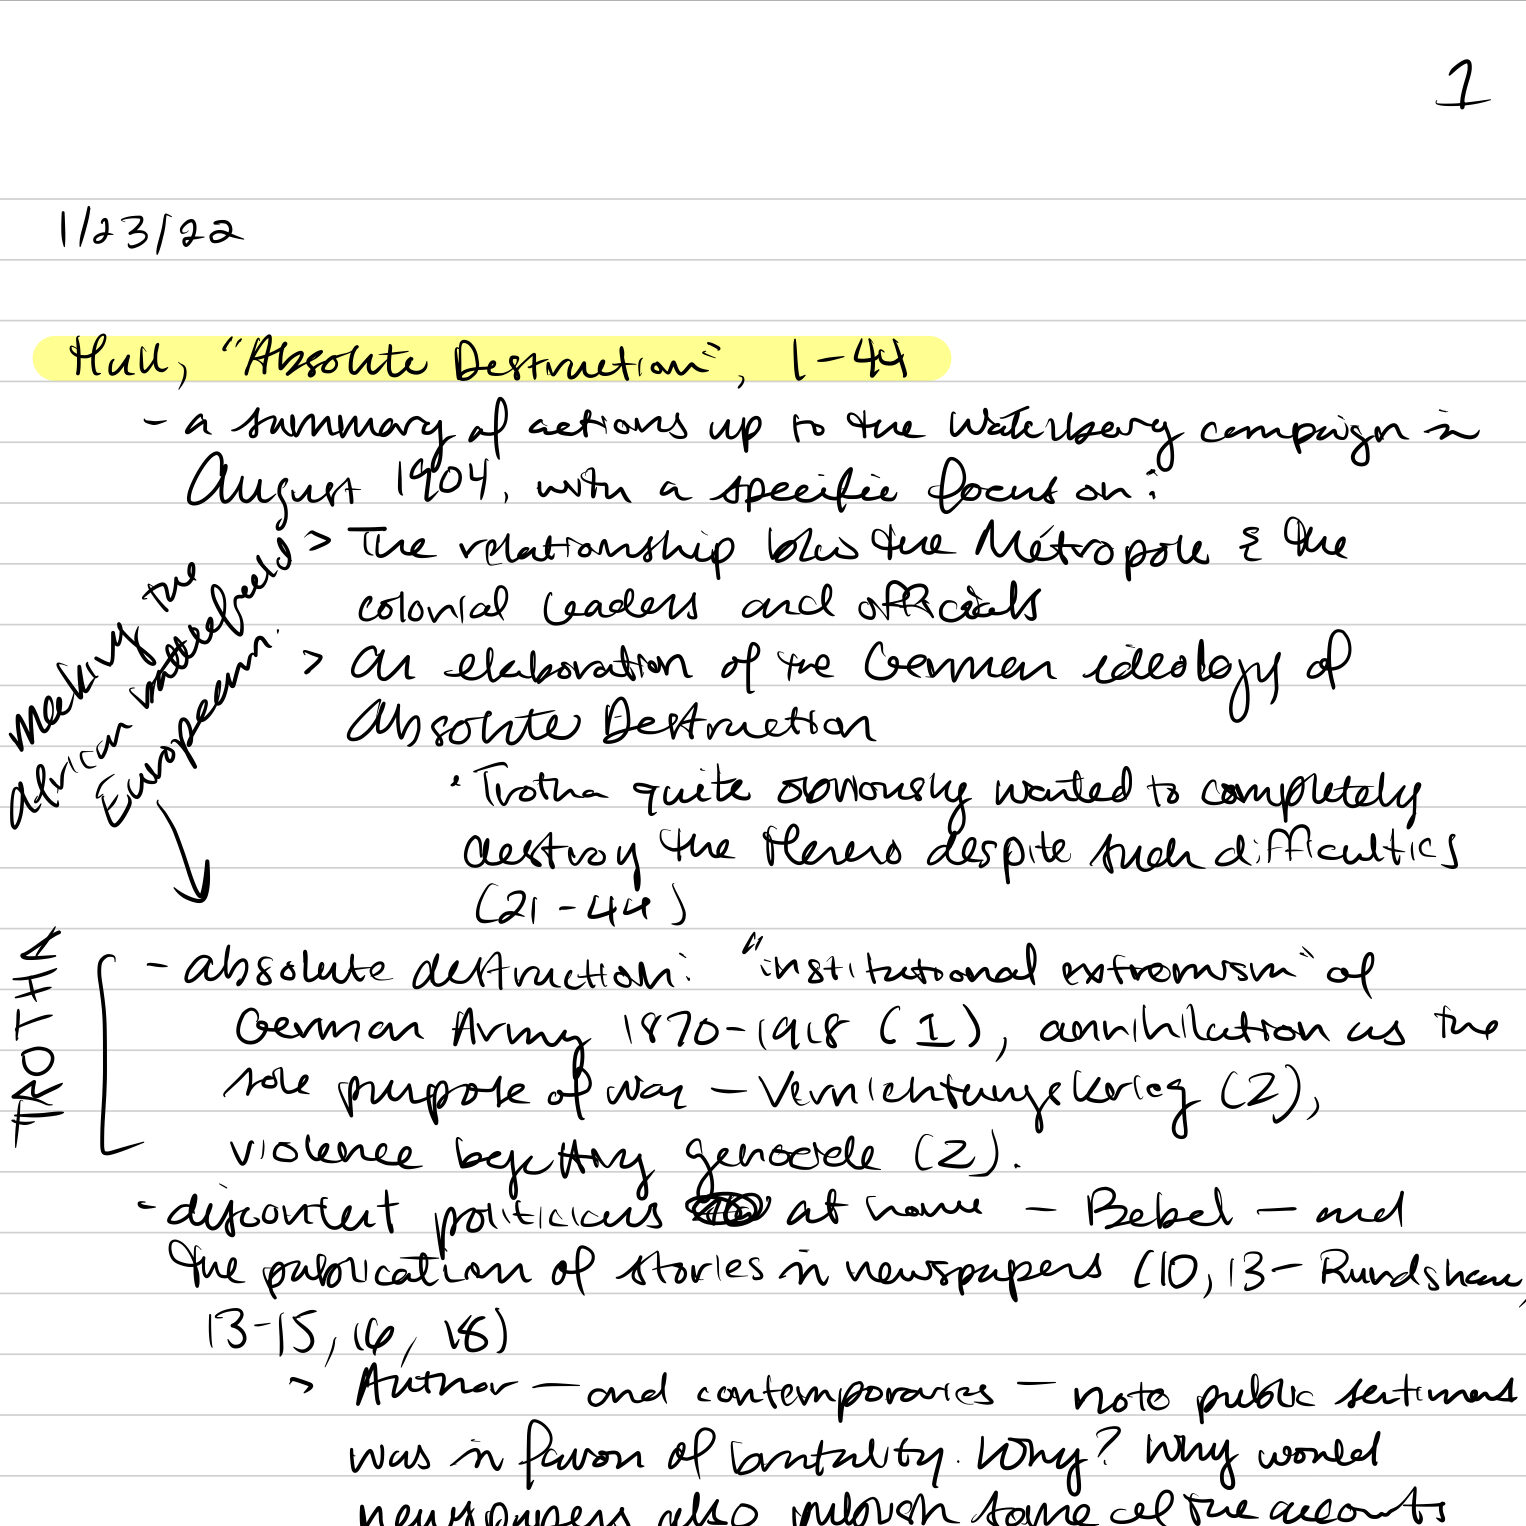 1
1/23/22
Hull, "Absolute Destruction", 1-44
- a summary of actions up to the Waterberg campaign in
August 1904, with a specific focus on:
> The relationship btw the Métropole & the
colonial leaders and officials
> an elaboration of the German ideology of
Absolute Destruction
• Trotha quite obviously wanted to completely
destroy the Herero despite such difficulties
(21-44)
making the
African battlefield
European.
TROTHA
- absolute destruction: "institutional extremism" of
German Army 1870-1918 (1), annihilation as the
sole purpose of war — Vernichtungskrieg (2),
violence begetting genocide (2).
- discontent politicians at home — Bebel — and
the publication of stories in newspapers (10, 13 - Rundshau,
13-15, 16, 18)
> Author — and contemporaries — note public sentiment
was in favor of brutality. Why? Why would
newspapers also publish some of the accounts